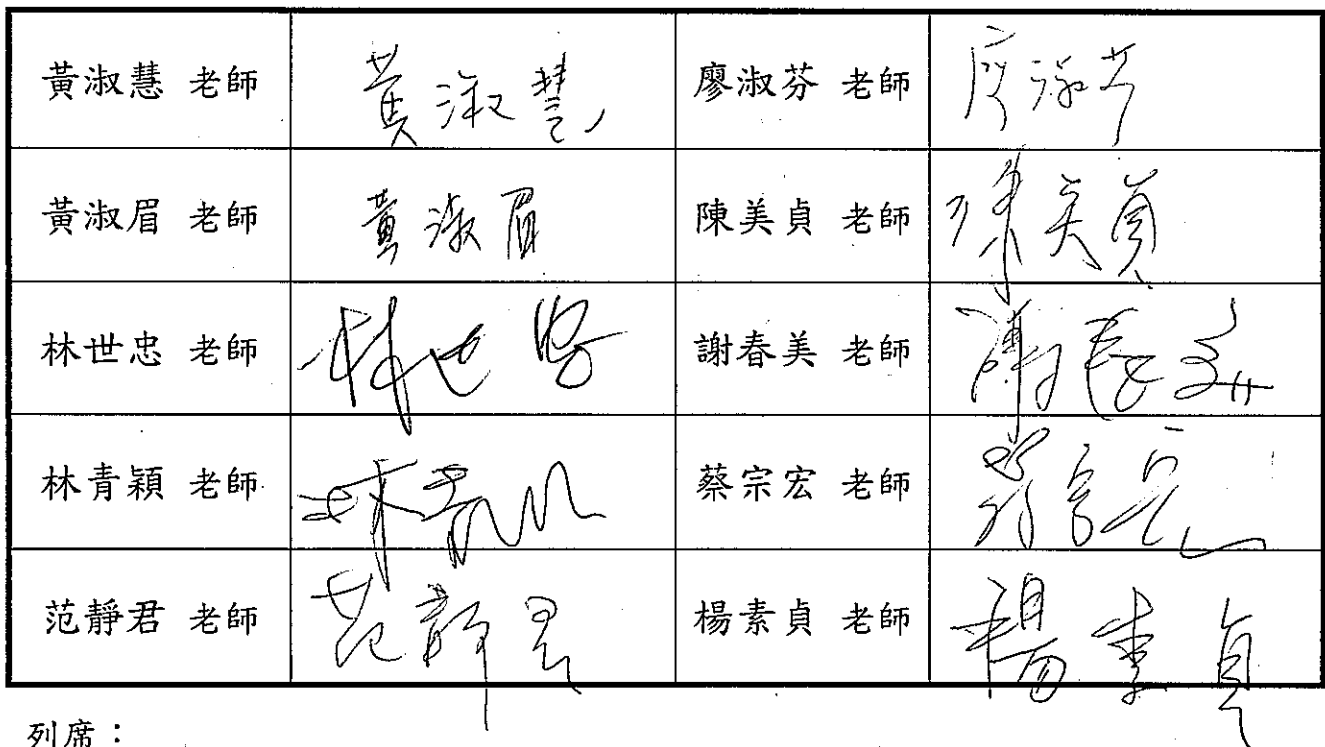 黃淑慧 老師 黃淑慧 廖淑芬 老師 廖淑芬
黃淑眉 老師 黃淑眉 陳美貞 老師 陳美貞
林世忠 老師 林世忠 謝春美 老師 謝春美
林青穎 老師 林青穎 蔡宗宏 老師 蔡宗宏
范靜君 老師 范靜君 楊素貞 老師 楊素貞
列席：